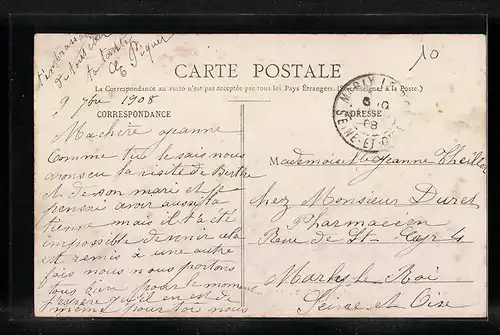 t'embrassant
de tout cœur
ta tante
Piquet
10
CARTE POSTALE
La Correspondance au recto n'est pas acceptée par tous les Pays Étrangers. (Se renseigner à la Poste.)
9 7bre 1908
CORRESPONDANCE
ADRESSE
MARLY LE
08
SEINE-ET-OISE
Ma chère Jeanne
Comme tu le sais nous
avons eu la visite de Berthe
et de son mari et je
pensais avoir aussi la
tienne mais il t'a été
impossible de venir cela
est remis à une autre
fois nous nous portons
tous bien pour le moment
j'espère qu'il en est de
même pour toi nous
Mademoiselle Jeanne
chez Monsieur Duret
Pharmacien
Rue de St Cyr 4
Marly le Roi
Seine et Oise